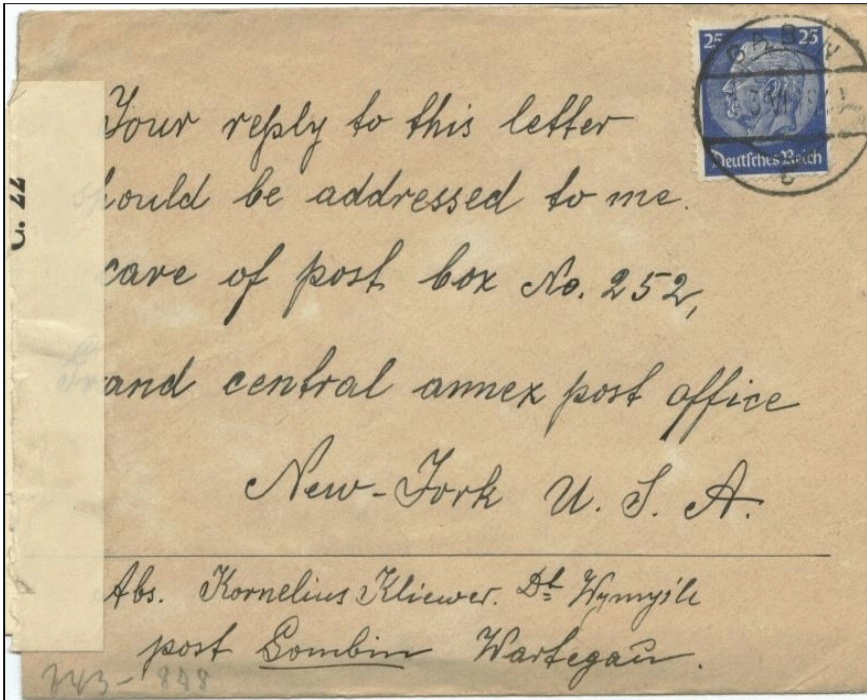 25 25
Deutsches Reich
Your reply to this letter
should be addressed to me.
care of post box No. 252,
Grand central annex post office
New-York U. S. A.
Abs. Kornelius Kliewer. Dt Wymysle
post Gombin Wartegau.
C. 22